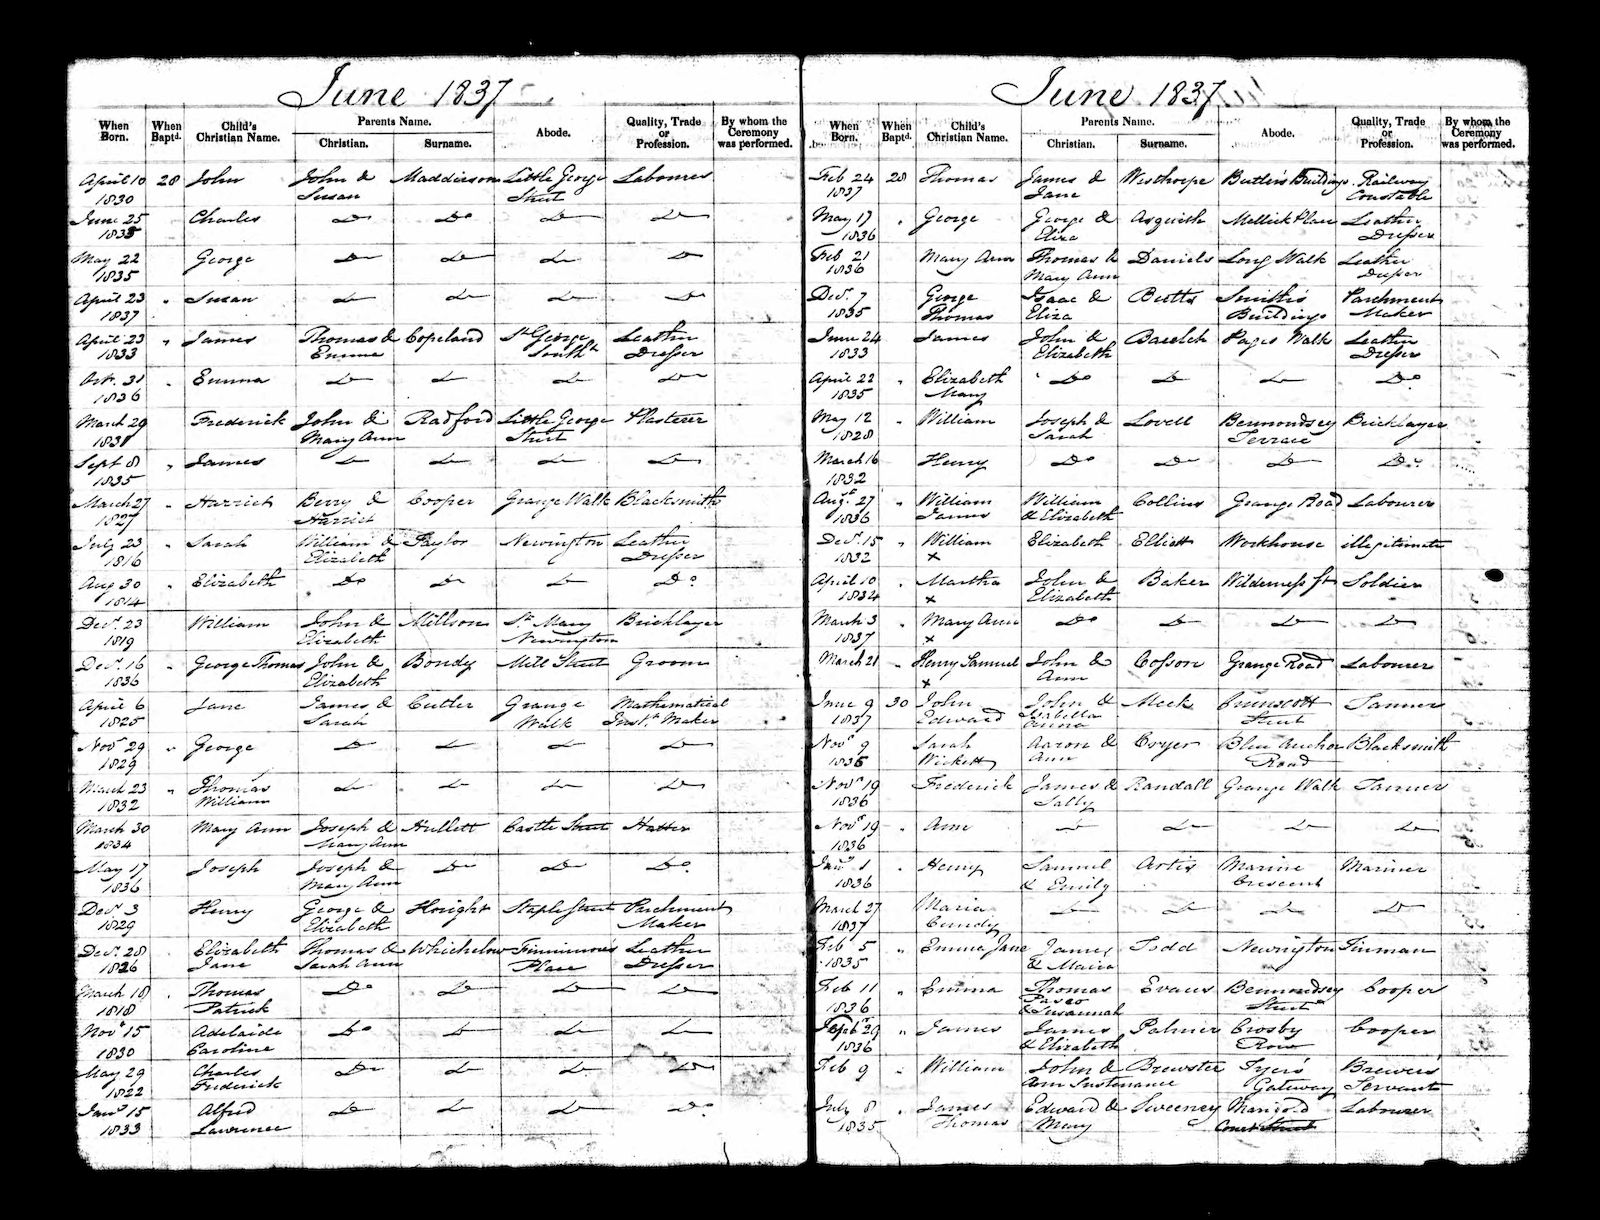 June 1837
When Born. When Baptd. Child's Christian Name. Parents Name. Christian. Surname. Abode. Quality, Trade or Profession. By whom the Ceremony was performed.
April 10 28 John John & Maddieson Little George Labourer
1830 Susan Street
June 25 Charles Do Do Do Do
1835
May 22 George Do Do Do Do
1835
April 23 " Susan Do Do Do Do
1837
April 23 " James Thomas & Copeland St George Leather
1833 Emma South Dresser
Oct. 31 " Emma Do Do Do Do
1836
March 29 Frederick John & Radford Little George Plasterer
1831 Mary Ann Street
Sept 8 " James Do Do Do Do
1835
March 27 " Harriet Berry & Cooper Grange Walk Blacksmith
1827 Harriet
July 23 " Sarah William & Taylor Newington Leather
1816 Elizabeth Dresser
Aug 30 " Elizabeth Do Do Do Do
1814
Decr. 23 William John & Millson St Mary Bricklayer
1819 Elizabeth Newington
Decr. 16 " George Thomas John & Bondy Mill Street Groom
1836 Elizabeth
April 6 Jane James & Cutler Grange Mathematical
1825 Sarah Walk Inst.t Maker
Novr 29 " George Do Do Do Do
1829
March 23 " Thomas Do Do Do Do
1832 William
March 30 Mary Ann Joseph & Hullett Castle Street Hatter
1834 Mary Ann
May 17 Joseph Joseph & Do Do Do
1836 Mary Ann
Decr 3 Henry George & Hought Staple Street Parchment
1829 Elizabeth Maker
Decr. 28 Elizabeth Thomas & Whichelow Leather
1826 Jane Sarah Ann Place Dresser
March 18 " Thomas Do Do Do Do
1818 Patrick
Novr 15 Adelaide Do Do Do Do
1830 Caroline
May 29 Charles Do Do Do Do
1822 Frederick
Jany 15 Alfred Do Do Do Do
1833 Lawrence
June 1837
When Born. When Baptd. Child's Christian Name. Parents Name. Christian. Surname. Abode. Quality, Trade or Profession. By whom the Ceremony was performed.
Feb 24 28 Thomas James & Westhorpe Butler's Buildings Railway
1837 Jane Constable
May 17 " George George & Asquith Mellick Place Leather
1836 Eliza Dresser
Feb 21 Mary Ann Thomas & Daniels Long Walk Leather
1836 Mary Ann Dresser
Decr. 7 George Isaac & Butts Smith's Parchment
1835 Thomas Eliza Buildings Maker
June 24 James John & Pages Walk Leather
1833 Elizabeth Dresser
April 22 " Elizabeth Do Do Do Do
1835 Mary
May 12 " William Joseph & Lovell Bermondsey Bricklayer
1828 Sarah Terrace
March 16 Henry Do Do Do Do
1832
Augt. 27 " William William Collins Grange Road Labourer
1836 James & Elizabeth
Decr. 15 " William Elizabeth Elliott Workhouse illegitimate
1832 x
April 10 " Martha John & Baker Wilderness St Soldier
1834 x Elizabeth
March 3 " Mary Ann Do Do Do Do
1837 x
March 21 " Henry Samuel John & Cosson Grange Road Labourer
x Ann
June 9 30 John John & Meek Crimscott Tanner
1837 Edward Isabella Street
Novr 9 Sarah Aaron & Cryer Blue Anchor Blacksmith
1836 Wickett Ann Road
Novr 19 Frederick James & Randall Grange Walk Tanner
1836 Sally
Novr 19 " Ann Do Do Do Do
1836
Jany 1 " Henry Samuel Artis Marine Mariner
1836 & Emily Crescent
March 27 Maria Do Do Do Do
1837 Cundy
Feb 5 " Emma Jane James Todd Newington Tinman
1835 & Maria
Feb 11 " Emma Thomas Evans Bermondsey Cooper
1836 Pasco Street
& Susannah
Septr 29 " James James Palmer Crosby Cooper
1836 & Elizabeth Row
Feb 9 " William John & Brewster Tyers Brewers
Ann Sustenance Gateway Servant
July 8 " James Edward & Sweeney Marigold Labourer
1835 Thomas Mary Court Street